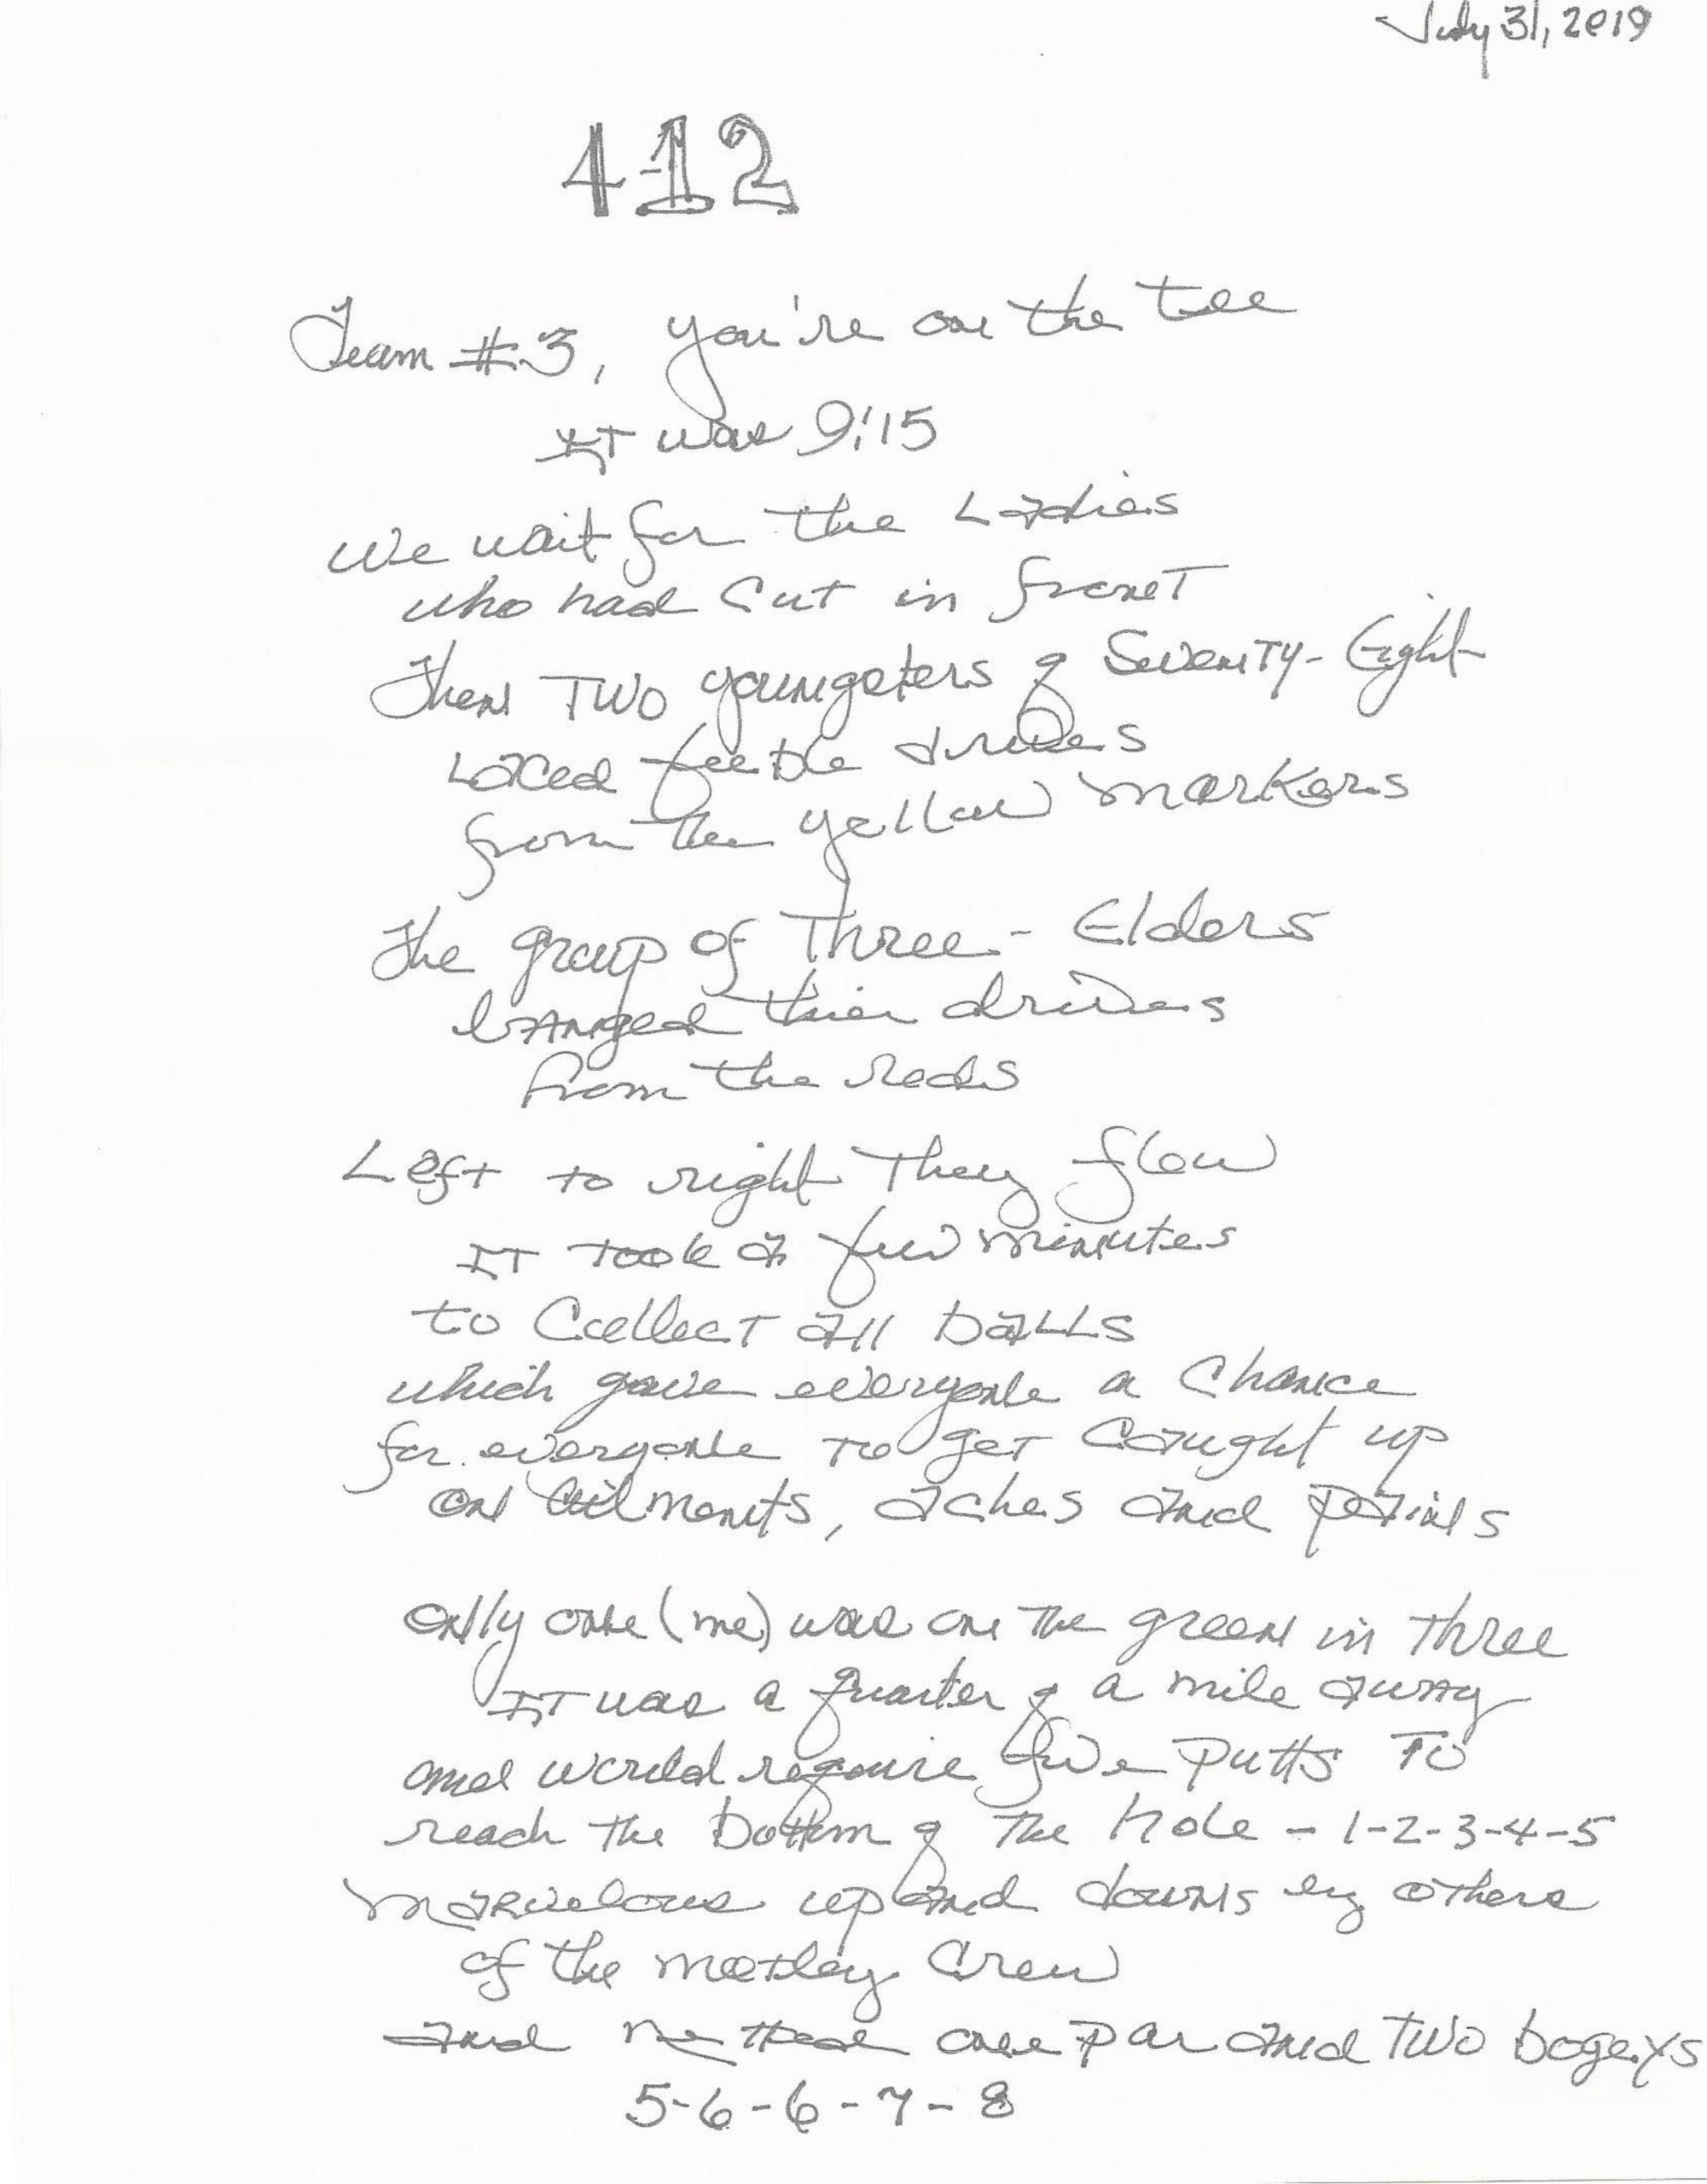 July 31, 2019
412
Team #3, you're on the tee
IT was 9:15
We wait for the Ladies
who had cut in front
Then TWO youngsters of Seventy-Eight
Laced feeble drives
from the yellow markers
The group of Three - Elders
banged thier drives
from the reds
Left to right They flew
IT took a few minutes
to Collect all balls
which gave everyone a chance
for everyone to get caught up
on ailments, aches and pains
only one (me) was on the green in three
IT was a quarter of a mile away
and would require five putts To
reach the bottom of The hole - 1-2-3-4-5
marvelous up and downs by others
of the motley Crew
and netted one par and TWO bogeys
5-6-6-7-8